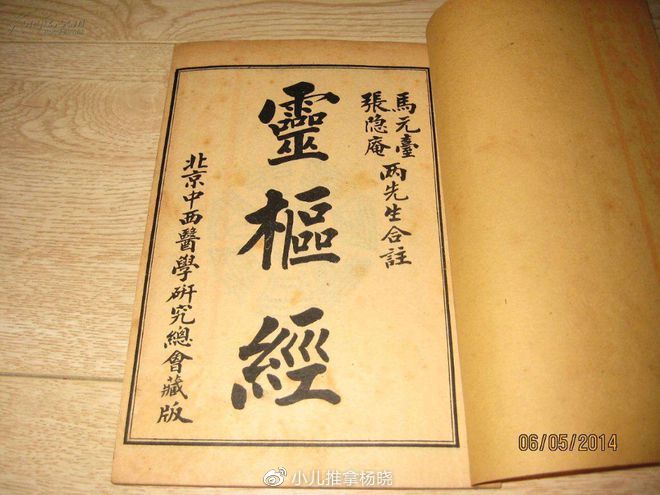 馬元臺
張隐庵
两先生合註
靈樞經
北京中西醫學研究總會藏版
06/05/2014
小儿推拿杨晓